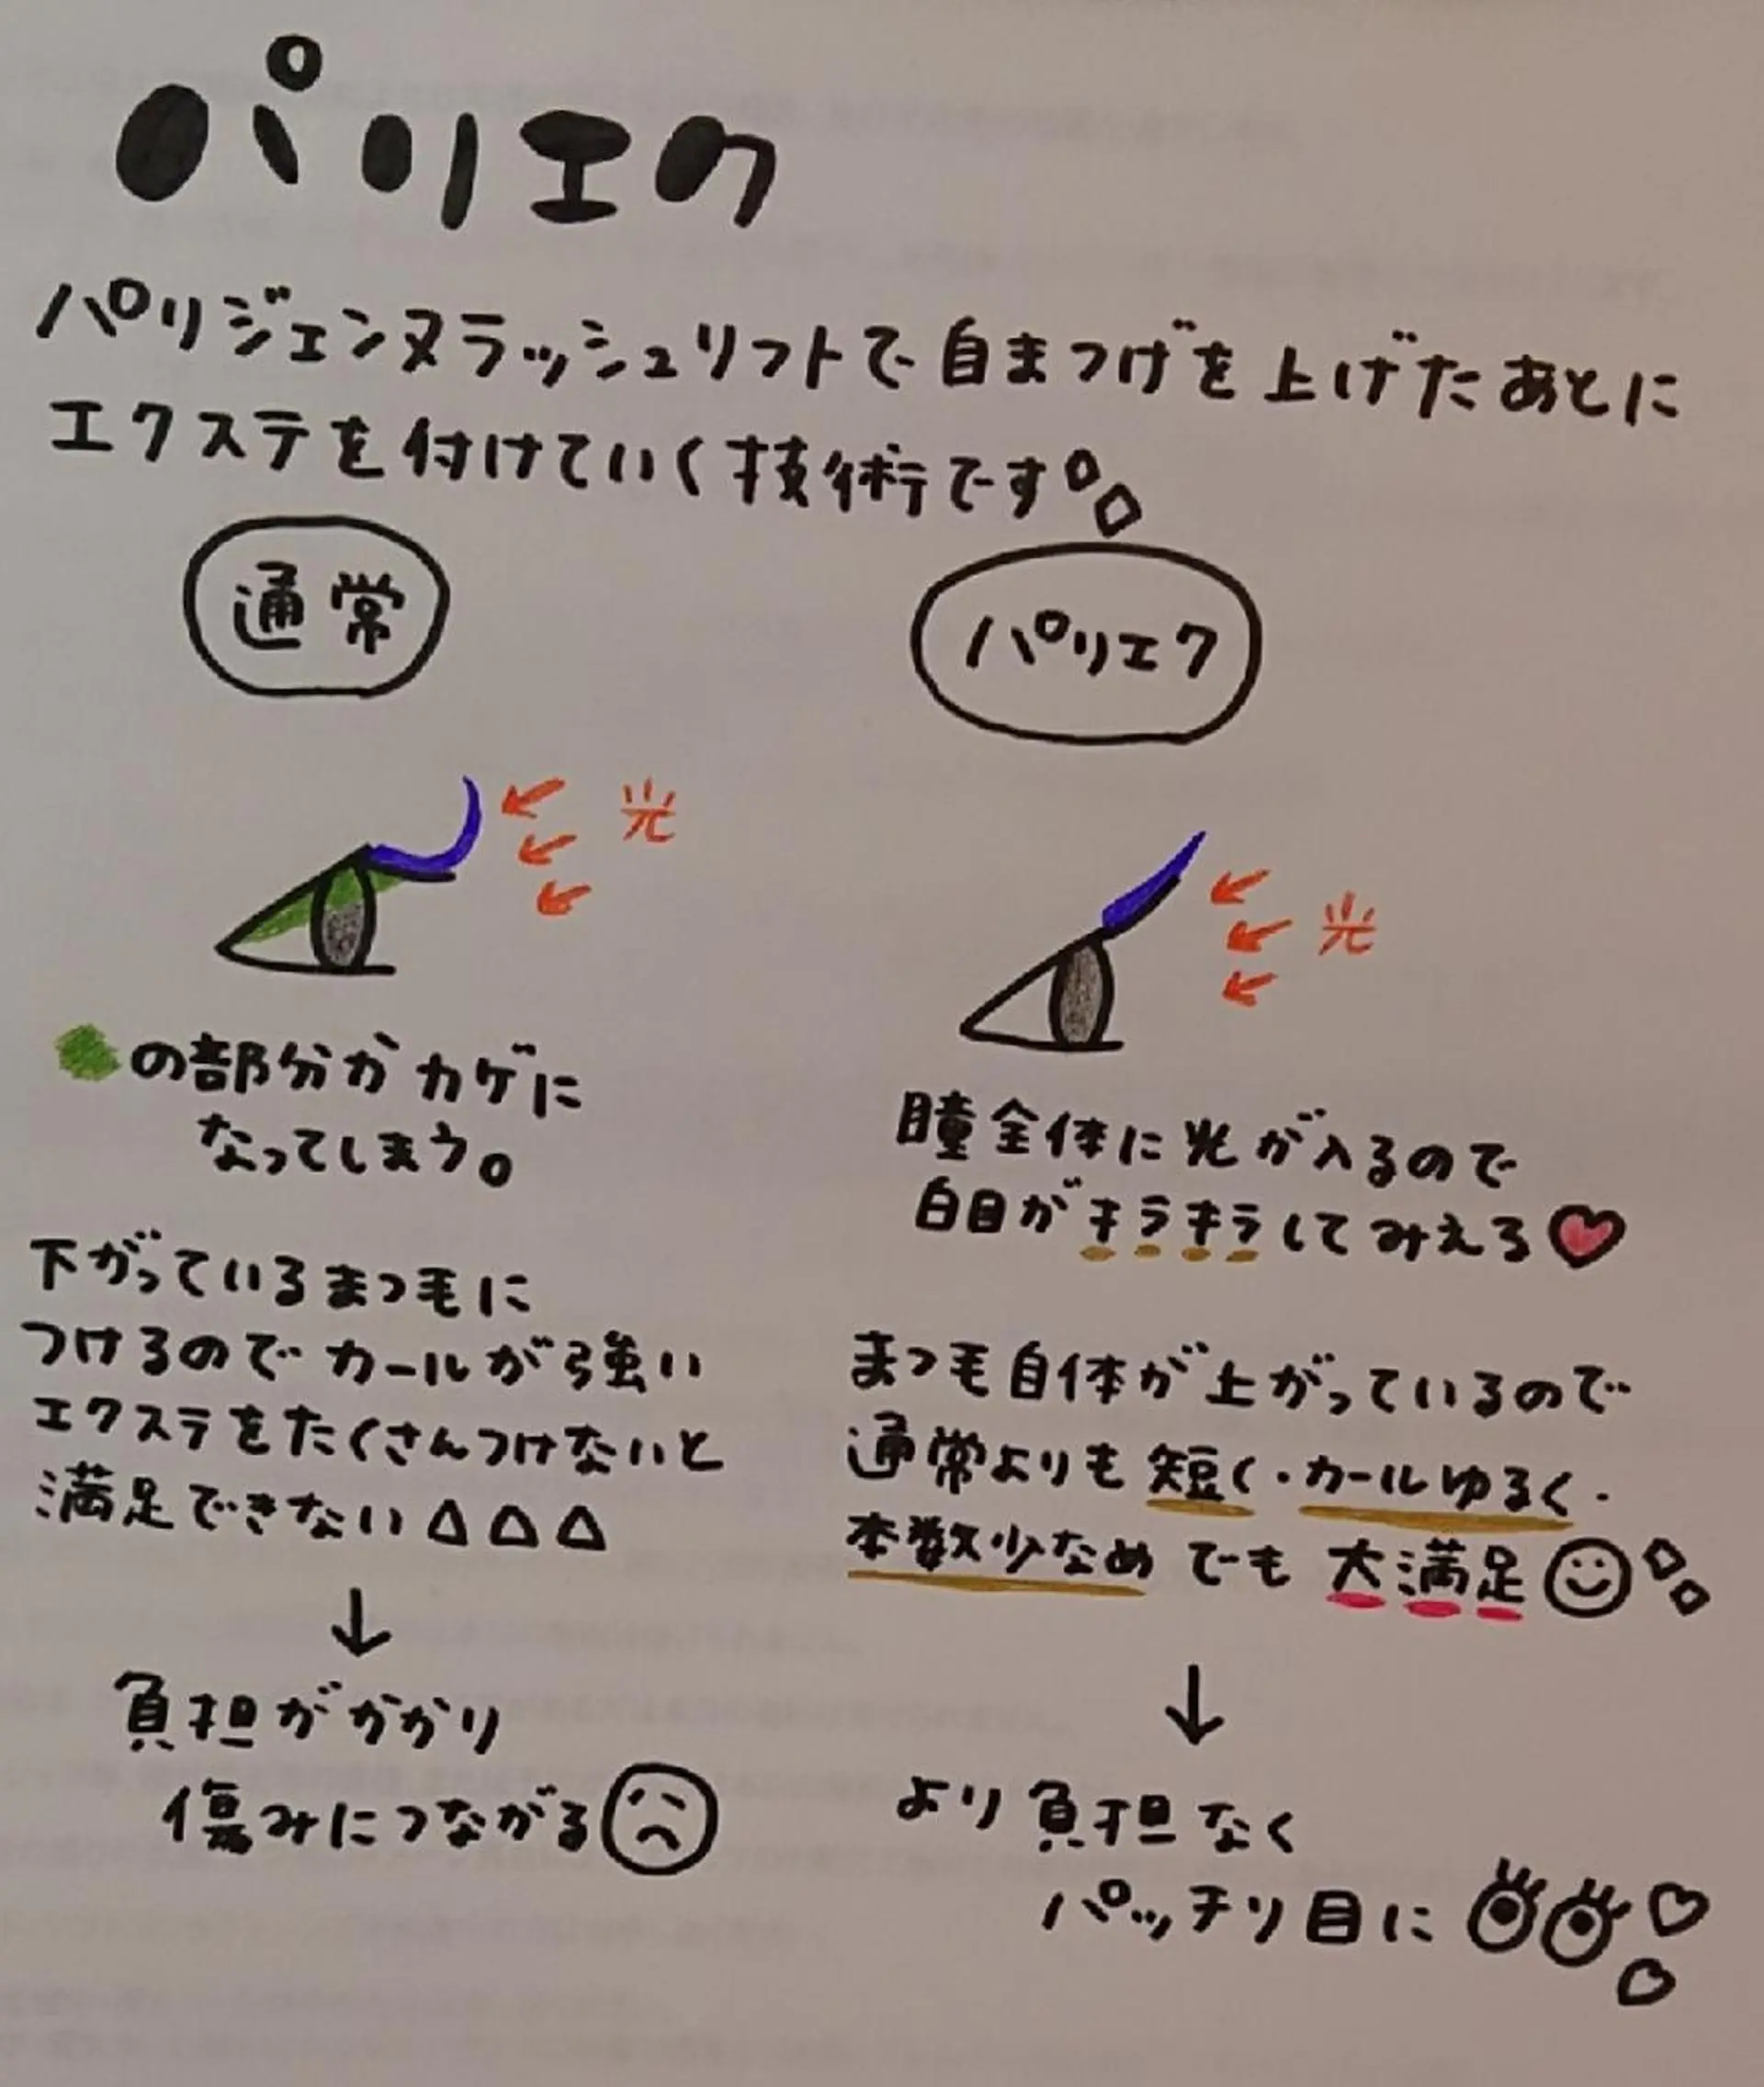 パリエク
パリジェンヌラッシュリフトで自まつげを上げたあとに
エクステを付けていく技術です
通常
光
の部分がカゲに
なってしまう。
下がっているまつ毛に
つけるのでカールが強い
エクステをたくさんつけないと
満足できない△△△
↓
負担がかかり
傷みにつながる
パリエク
光
瞳全体に光が入るので
白目がキラキラしてみえる
まつ毛自体が上がっているので
通常よりも短く・カールゆるく・
本数少なめでも大満足
↓
より負担なく
パッチリ目に